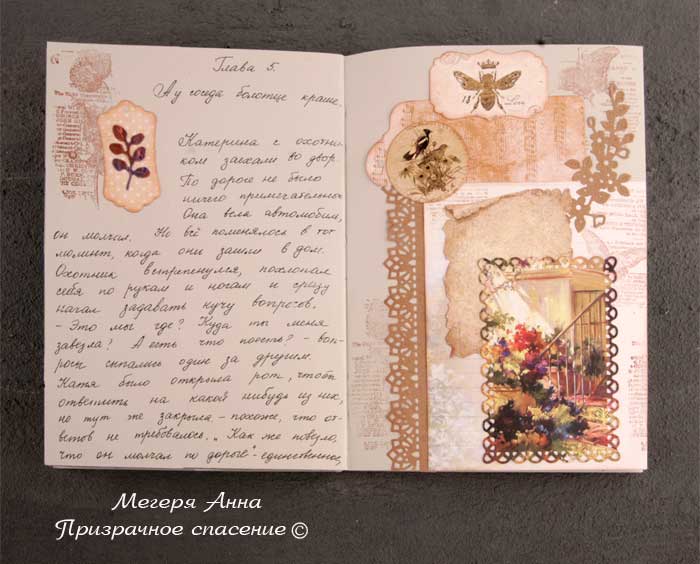 Глава 5.
А у соседа болотце краше.
Катерина с охотни-
ком заехали во двор.
По дороге не было
ничего примечательного
Она вела автомобиль,
он молчал. Но всё поменялось в тот
момент, когда они зашли в дом.
Охотник встрепенулся, похлопал
себя по рукам и ногам и сразу
начал задавать кучу вопросов.
- Это мы где? Куда ты меня
завезла? А есть что поесть? - воп-
росы сыпались один за другим.
Катя было открыла рот, чтобы
ответить на какой нибудь из них,
но тут же закрыла, - похоже, что от-
ветов не требовалось. „Как же повезло,
что он молчал по дороге" - единственное,
18
Мегеря Анна
Призрачное спасение ©